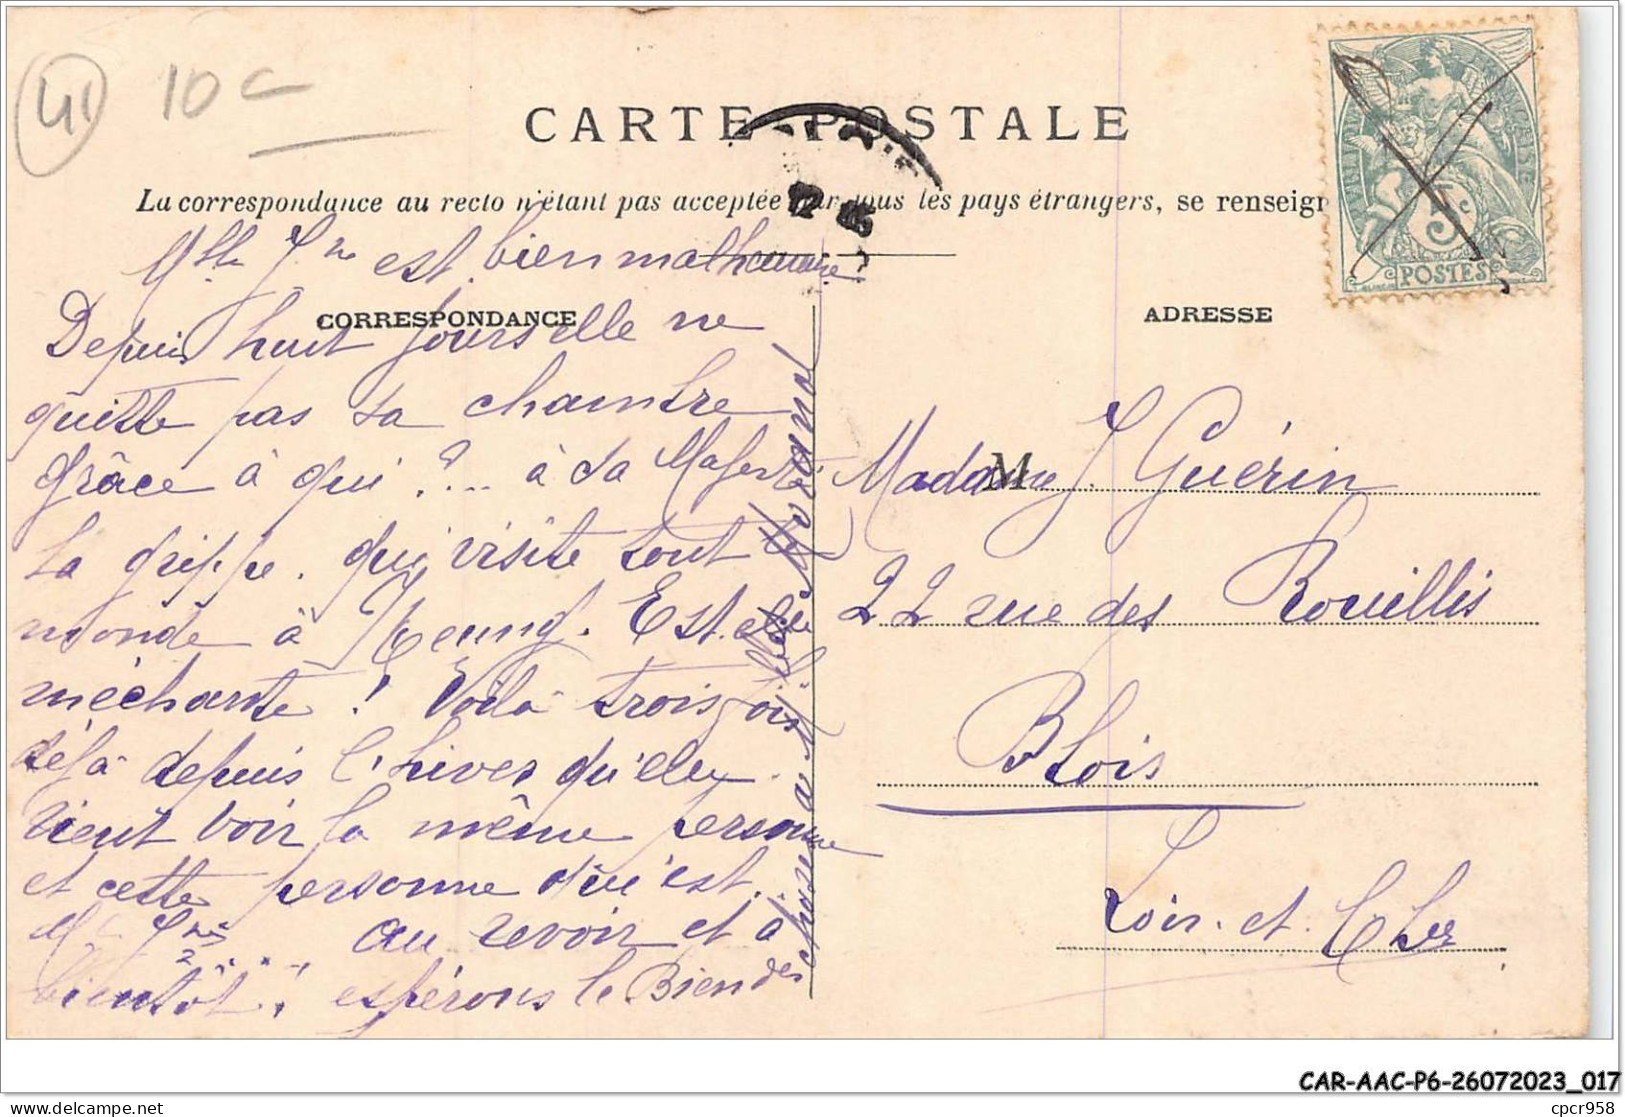 41 10 c
CARTE POSTALE
La correspondance au recto n'étant pas acceptée par tous les pays étrangers, se renseigr
5c
POSTES
Mlle est bien malheureuse
CORRESPONDANCE
ADRESSE
Depuis huit jours elle ne
quitte pas sa chambre
grâce à qui ?... à Sa Majesté
La grippe. qui visite tout le
monde à Meung. Est elle
méchante ! Voilà trois fois
déjà depuis l'hiver qu'elle
vient voir la même personne
et cette personne qui est.
au revoir et à
bientôt ! espérons le Bien des
choses à Mlle
Madame J. Guérin
M
22 rue des Rouillis
Blois
Loir-et-Cher
CAR-AAC-P6-26072023_017
cpcr958